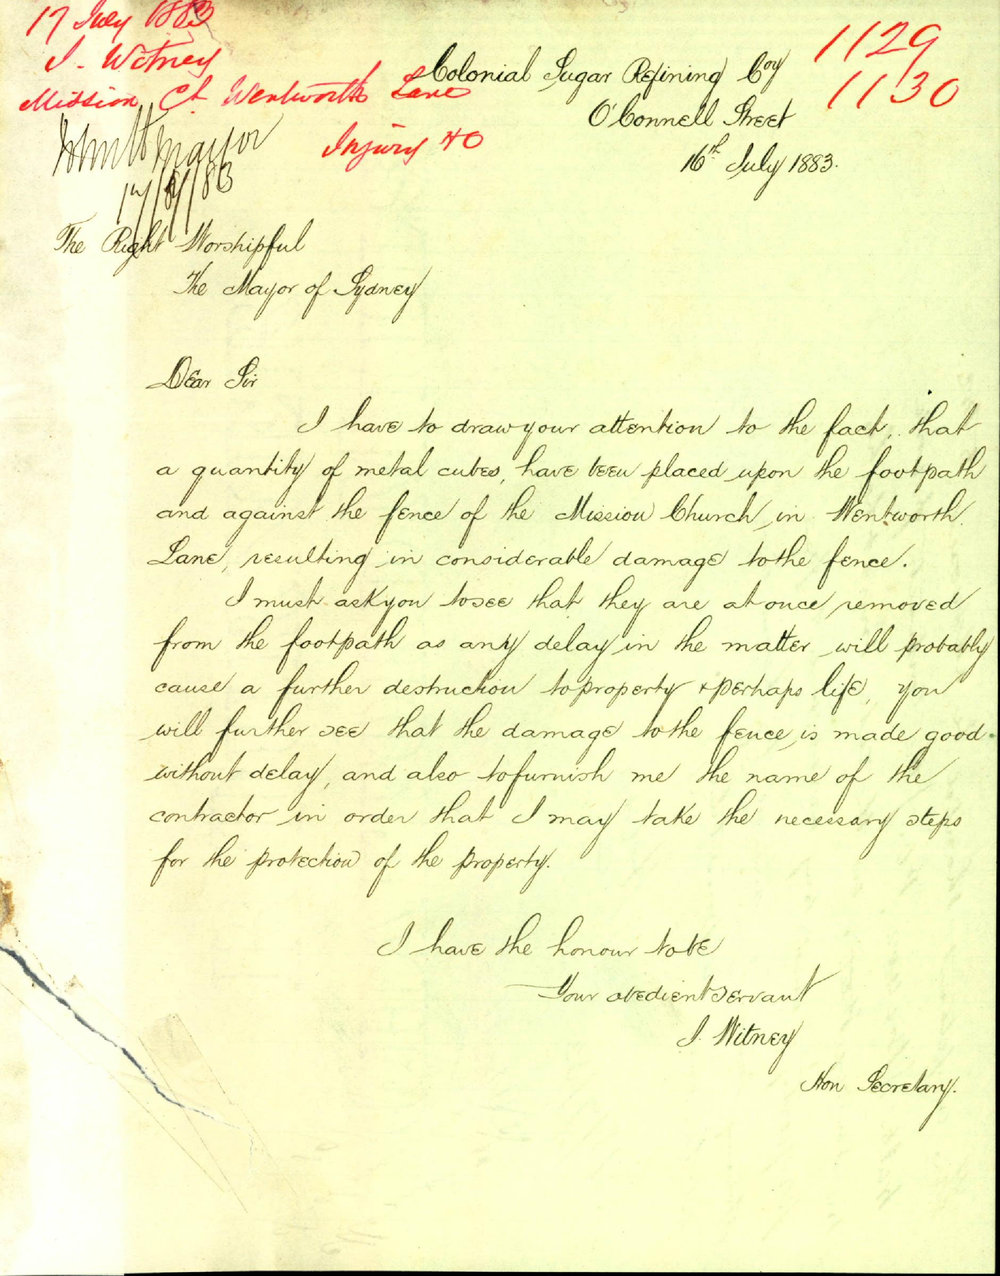 17 July 1883
J. Witney
Mission Ch Wentworth Lane
Injury to
1129
1130
Mayor
17/7/83
Colonial Sugar Refining Coy
O'Connell Street
16th July 1883.
The Right Worshipful
The Mayor of Sydney
Dear Sir
I have to draw your attention to the fact, that
a quantity of metal cubes, have been placed upon the footpath
and against the fence of the Mission Church in Wentworth
Lane, resulting in considerable damage to the fence.
I must ask you to see that they are at once removed
from the footpath as any delay in the matter will probably
cause a further destruction to property & perhaps life, you
will further see that the damage to the fence is made good
without delay, and also to furnish me the name of the
contractor in order that I may take the necessary steps
for the protection of the property.
I have the honour to be
Your obedient servant
J. Witney
Hon Secretary.